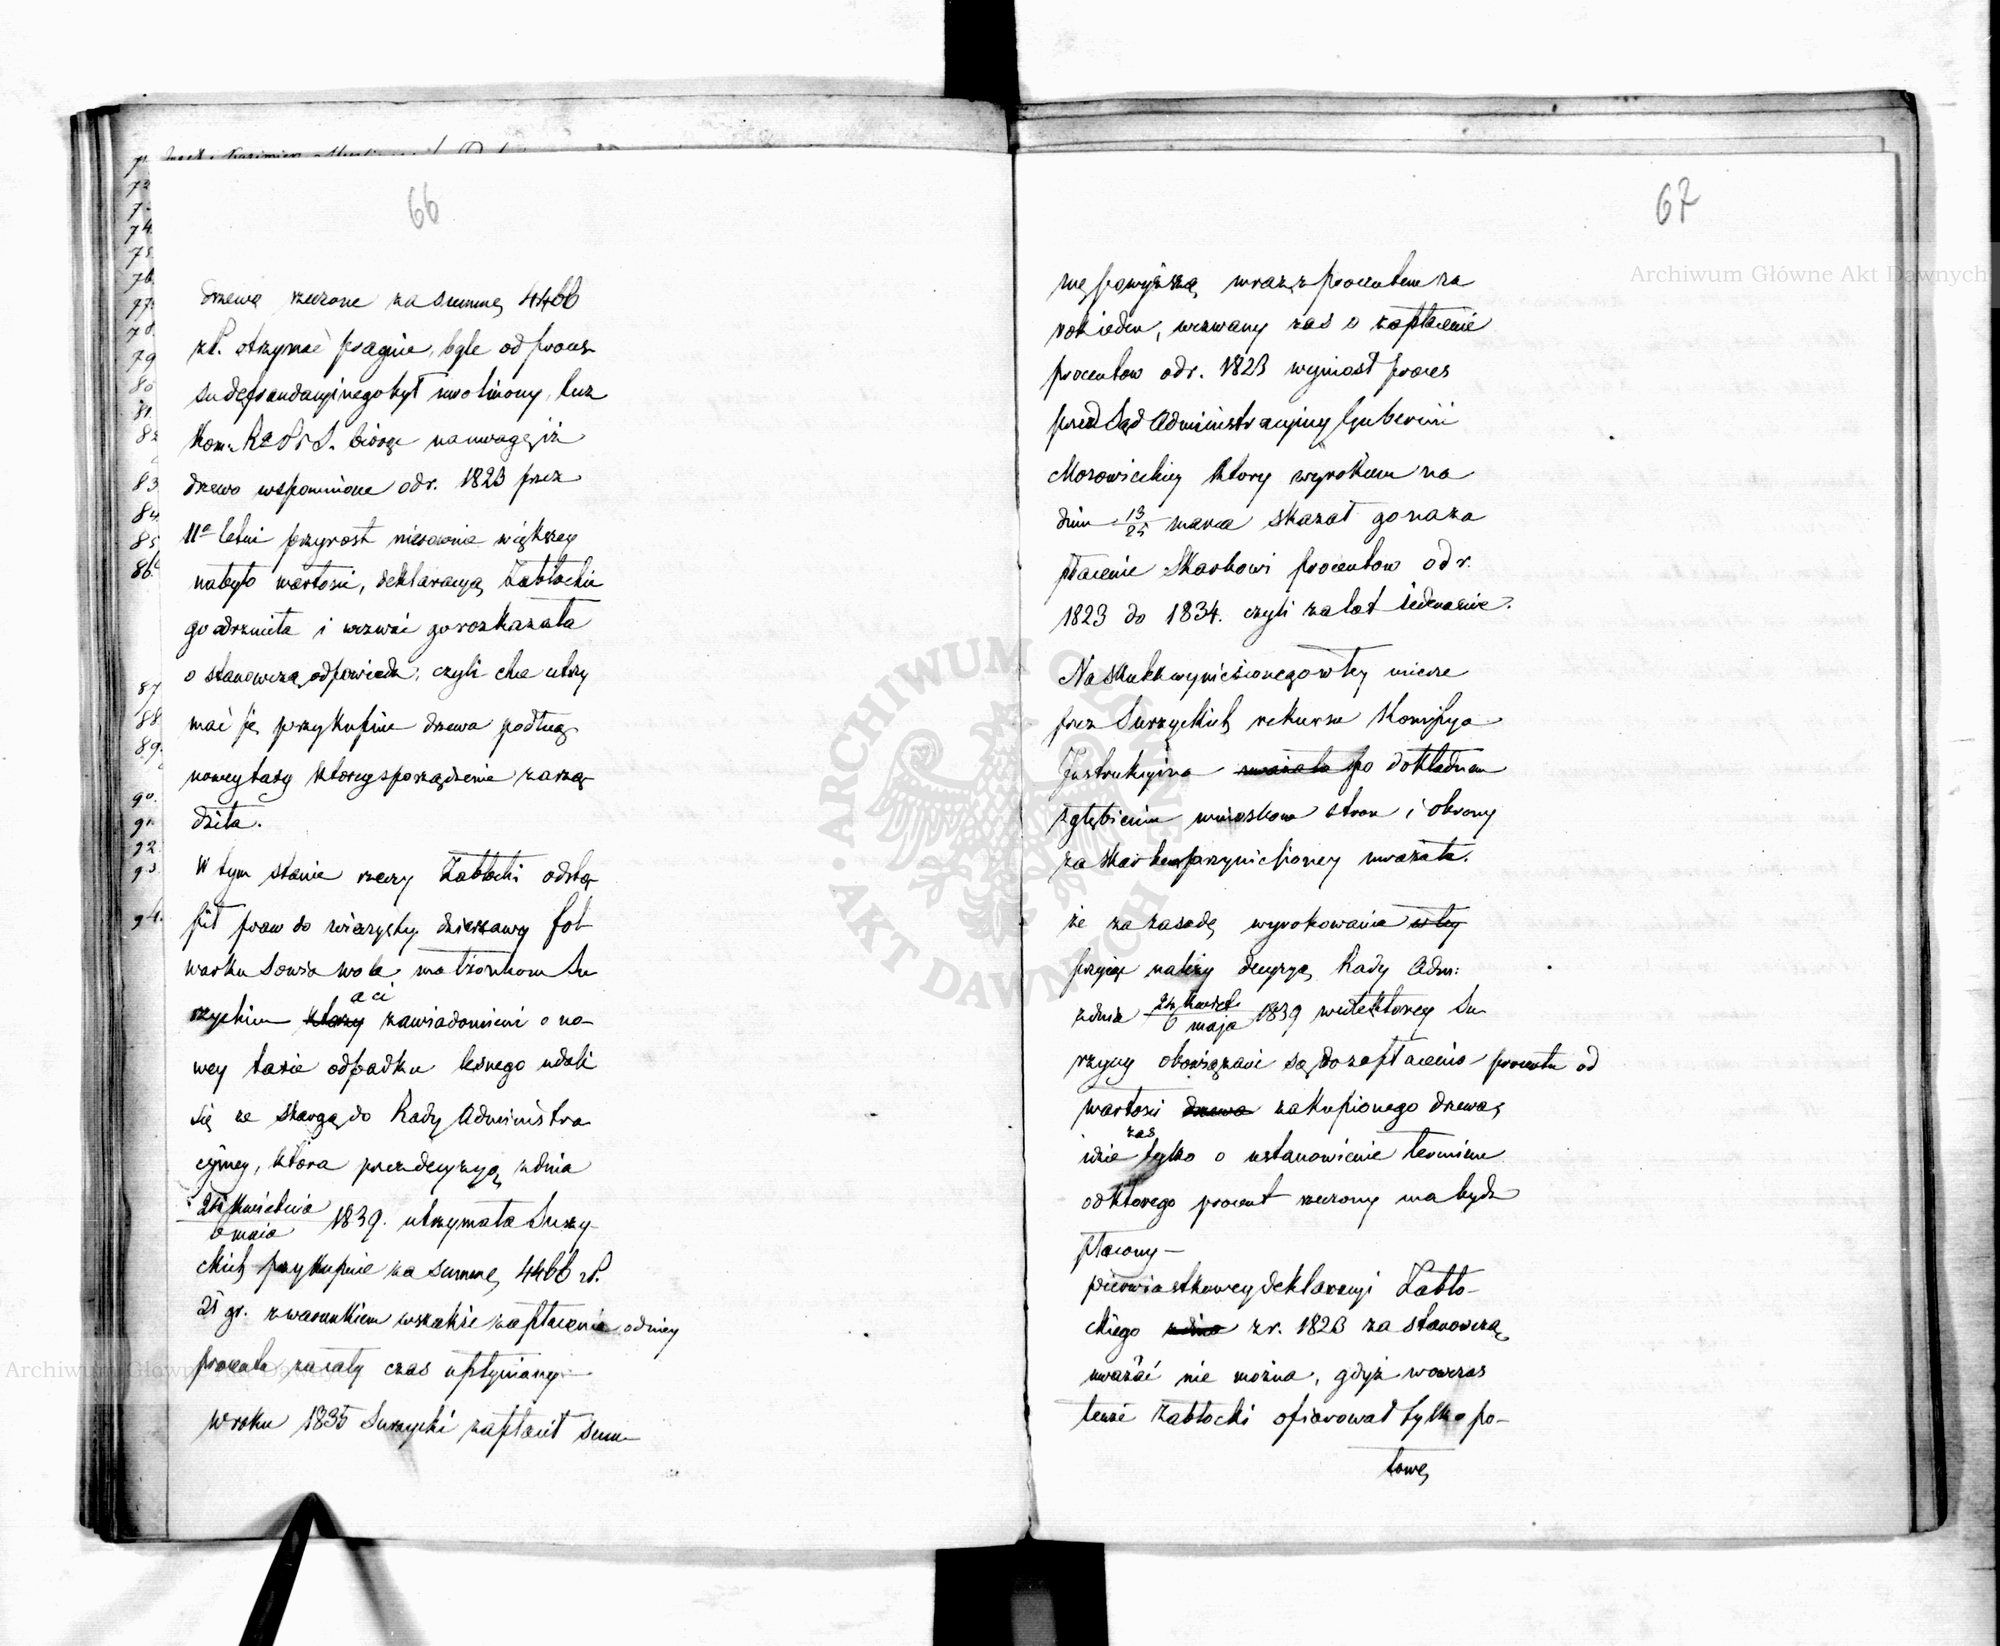 66
drzewa rzeczone za summę 4466
zł. otrzymać pragnie, byle od proces
su defraudacyjnego był uwolniony, lecz
Kom. R. P. i S. biorąc na uwagę iż
drzewo wspomnione od r. 1823 przez
11a letni przyrost niezawnie większey
nabyło wartości, deklaracyą Zabłockie
go odrzuciła i wezwać go rozkazała
o stanowczą odpowiedz, czyli chce utrzy
mać się przy kupnie drzewa podług
nowey taxy ktorey sporządzenie zarzą
dziła.
W tym stanie rzeczy Zabłocki odstą
pił praw do wieczystey dzierzawy fol
warku Sowia wola małżonkom Su
rzyckim którzy aci zawiadomieni o no-
wey taxie odpadku lesnego udali
się ze skargą do Rady Administra
cyiney, która przez decyzyą z dnia
24 Kwietnia
6 maia 1839. utrzymała Surzy-
ckich przy kupnie za summę 4466 zł.
21 gr. z warunkiem wszakże zapłacenia od niey
procentu za cały czas upłyniony
W roku 1835 Surzycki zapłacił sum-
67
mę powyższą wraz z procentem za
rok ieden, wezwany zas o zapłacenie
procentow od r. 1823 wyniosł proces
przed Sąd Administracyiny Gubernii
Mazowieckiey ktory wyrokiem na
dniu 13/25 marca skazał go na za
płacenie Skarbowi procentow od r.
1823 do 1834. czyli za lat iedenascie.
Na skutek wyniesionego w tey mierze
przez Surzyckich rekursu Kommissya
Instrukcyina uważała po dokładnem
zgłębieniu wniosków stron i obrony
za skarbem przyniesioney uważała.
że za zasadę wyrokowania w tey
przyiąć należy decyzyą Rady Adm:
z dnia 24 Kwiet.
6 maja 1839 wedle ktorey Su
rzyccy obowiązani są do zapłacenia procentu od
wartosci drzewa zakupionego drzewa,
idzie zas tylko o ustanowienie terminu
od ktorego procent rzeczony ma bydz
płacony –
pierwiastkowey deklaracyi Zabło-
ckiego z dnia z r. 1823 za stanowczą
uważać nie można, gdyż wowczas
tenże Zabłocki ofiarował tylko po-
łowę
Archiwum Główne Akt Dawnych
ARCHIWUM GŁÓWNE AKT DAWNYCH
Archiwum Główne Akt Dawnych